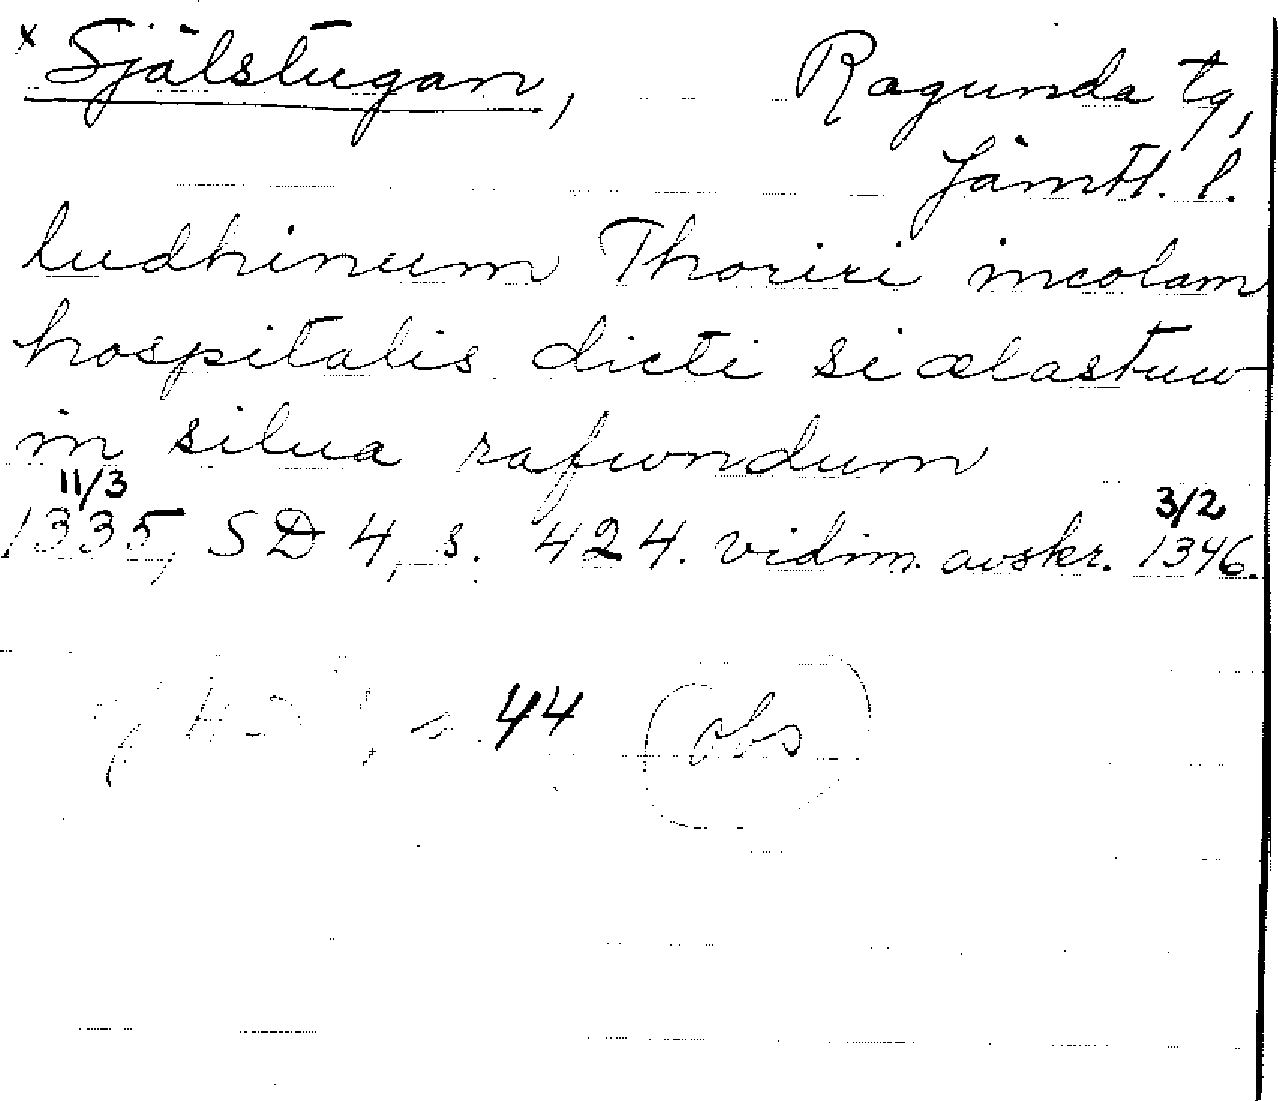 x Själstugan, Ragunda tg,
Jämtl. l.
ludhinum Thoriri incolam
hospitalis dicti siælastuw
in silua rafwndum
11/3 3/2
1335, SD 4, s. 424. vidim. avskr. 1346.
44 (obs)